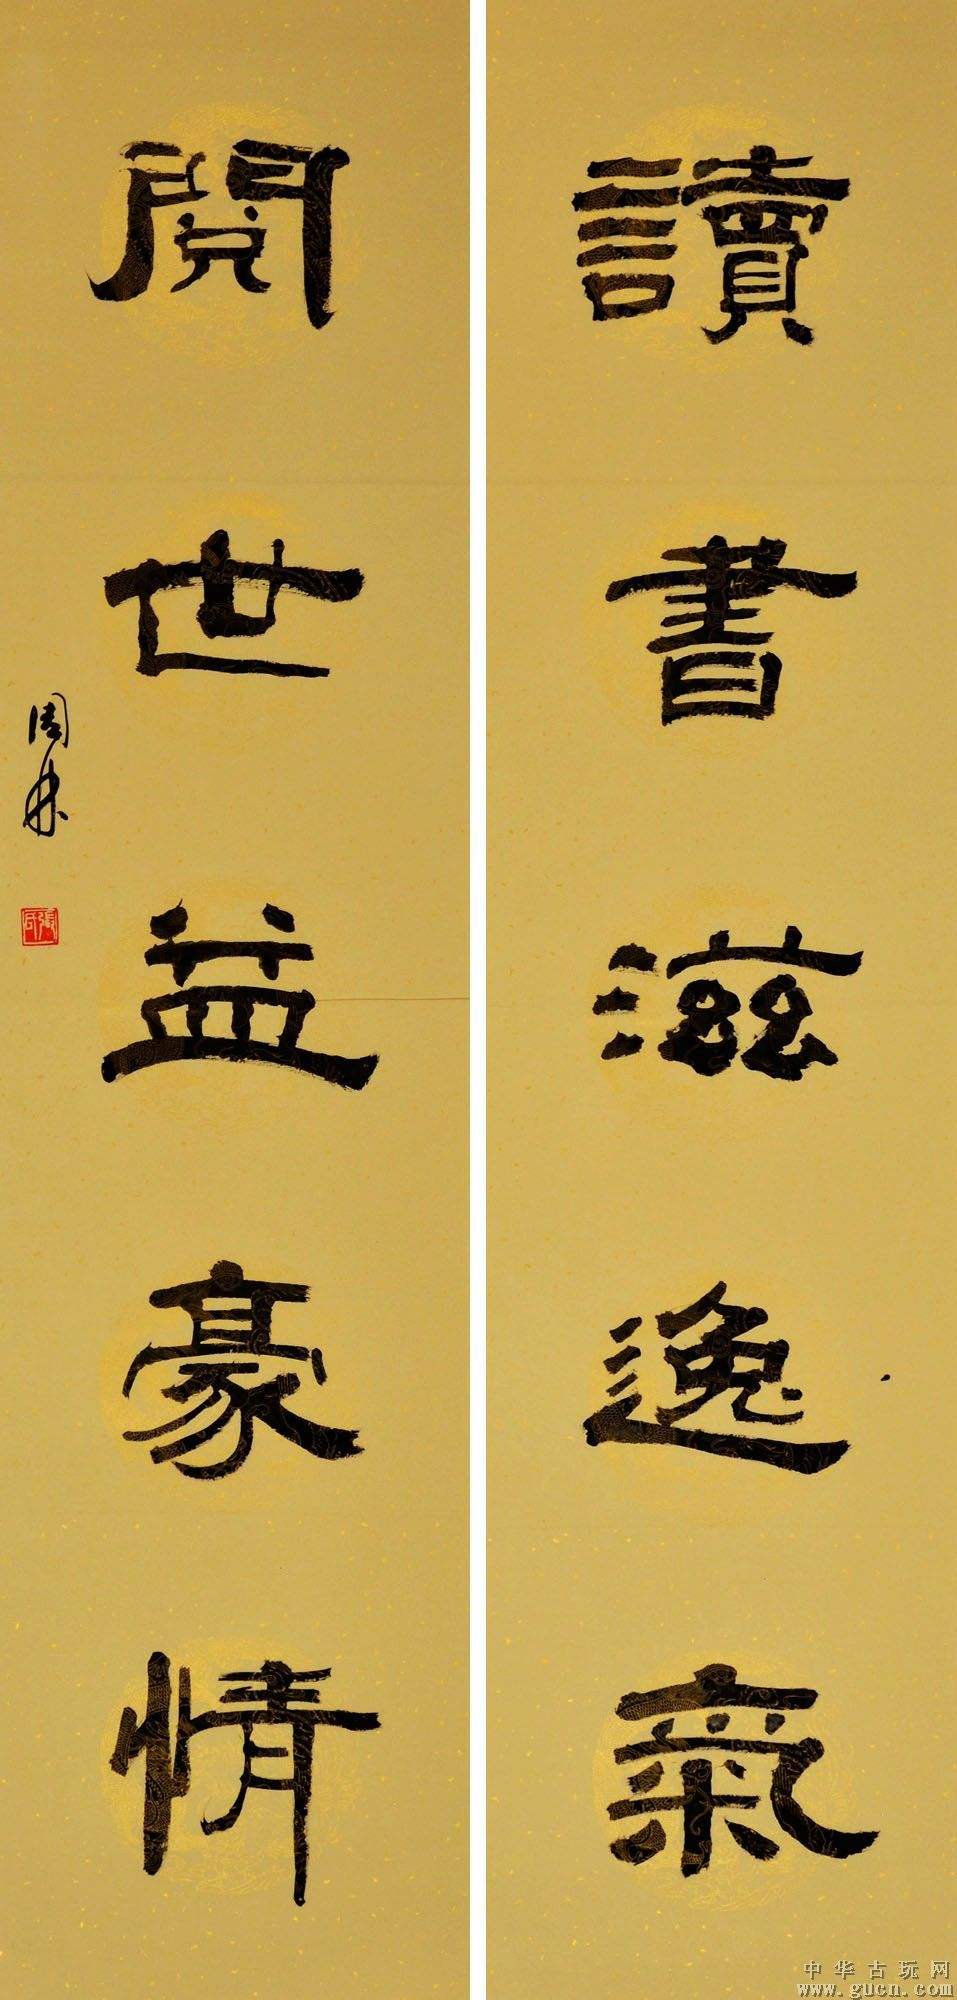 讀書滋逸氣
閱世益豪情
周林
中华古玩网
www.gucn.com